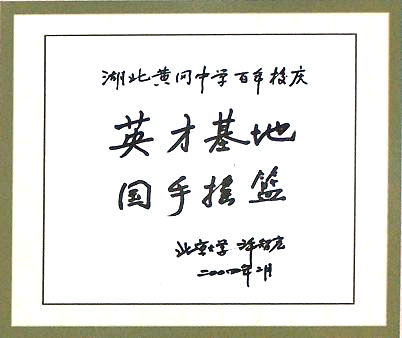 湖北黄冈中学百年校庆
英才基地
国手摇篮
北京大学 许智宏
二〇〇四年二月